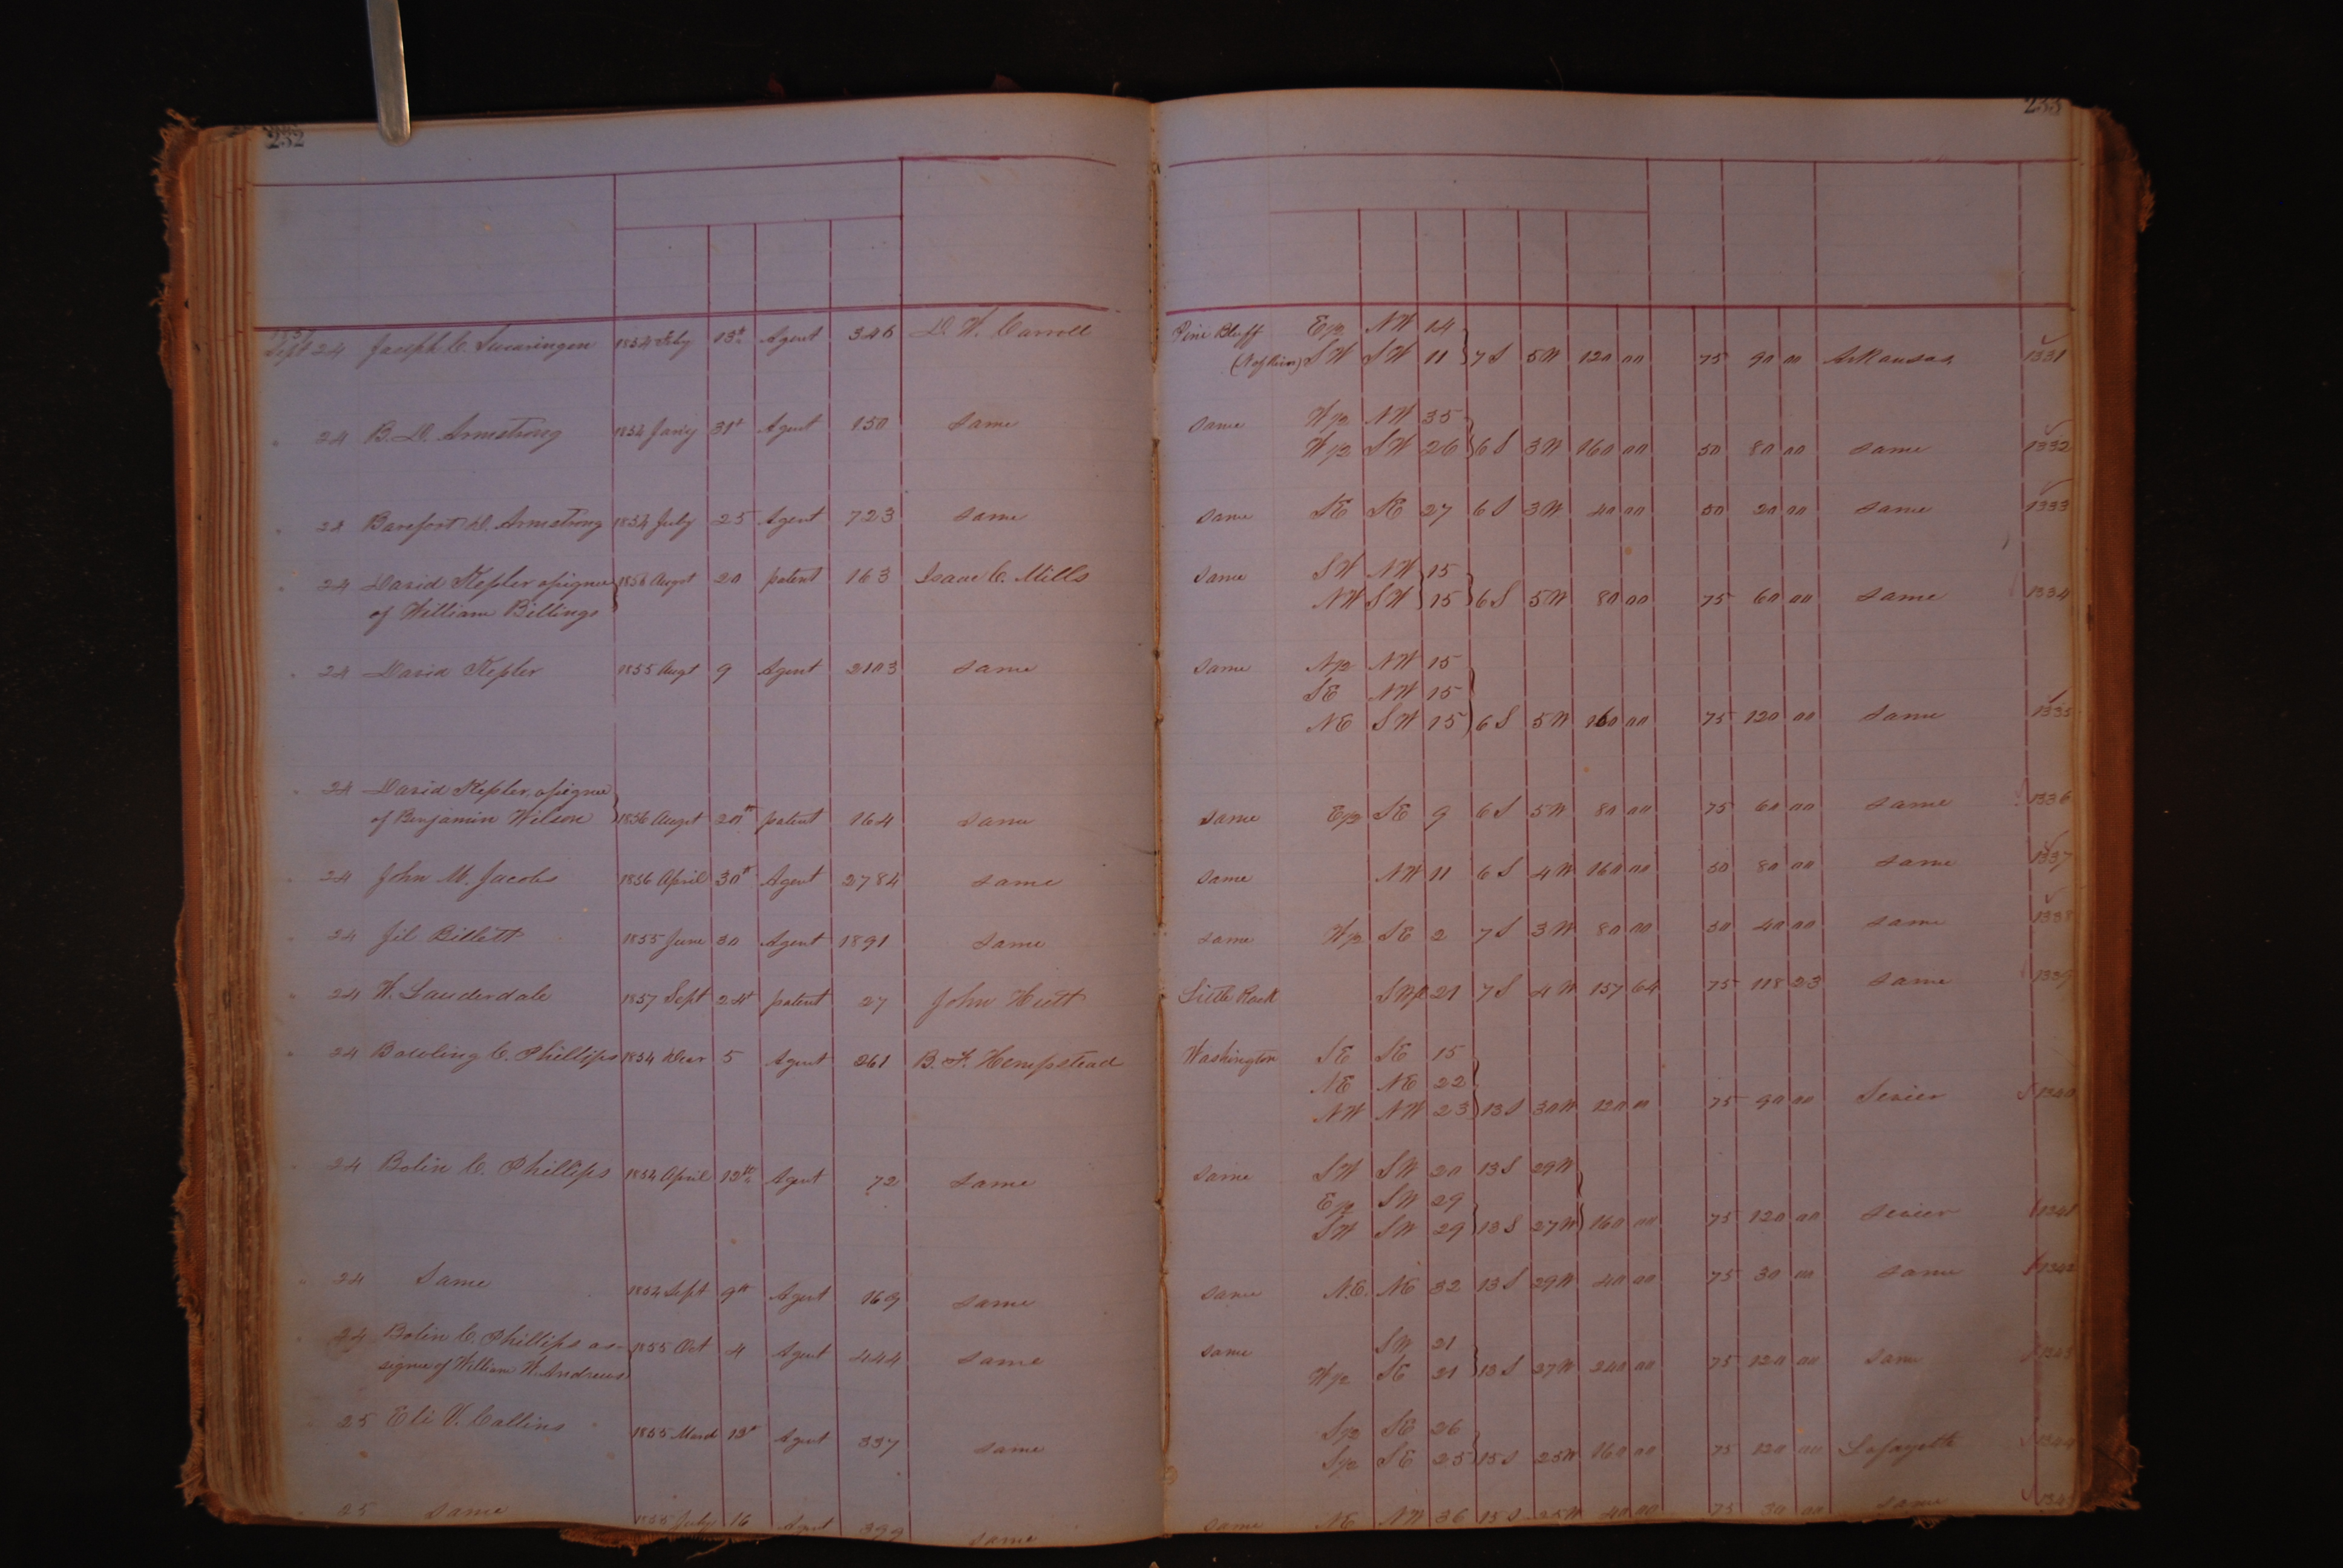 232
233
1857
Sept 24 Joseph C. Swearingen 1854 Feby 13th Agent 346 D. W. Carroll Pine Bluff E1/2 NW 14
(N of River) SW SW 11 7S 5W 120 00 75 90 00 Arkansas 1331
" 24 B. D. Armstrong 1854 Jany 31st Agent 150 Same Same W1/2 NW 35
W1/2 SW 26 6S 3W 160 00 50 80 00 Same 1332
" 24 Barefort D. Armstrong 1854 July 25 Agent 723 Same Same SE SE 27 6S 3W 40 00 50 20 00 Same 1333
" 24 David Kepler assignee 1856 Augst 20 patent 163 Isaac C. Mills Same SW NW 15
of William Billings NW SW 15 6S 5W 80 00 75 60 00 Same 1334
" 24 David Kepler 1855 Augt 9 Agent 2103 Same Same N1/2 NW 15
SE NW 15
NE SW 15 6S 5W 160 00 75 120 00 Same 1335
" 24 David Kepler, assignee
of Benjamin Wilson 1856 Augst 20th patent 164 Same Same E1/2 SE 9 6S 5W 80 00 75 60 00 Same 1336
" 24 John M. Jacobs 1856 April 30th Agent 2784 Same Same NW 11 6S 4W 160 00 50 80 00 Same 1337
" 24 Jil Billett 1855 June 30 Agent 1891 Same Same W1/2 SE 2 7S 3W 80 00 50 40 00 Same 1338
" 24 W. Lauderdale 1857 Sept 24th patent 27 John Hutt Little Rock 21 7S 4W 157 64 75 118 23 Same 1339
" 24 Bowling C. Phillips 1854 Decr 5 Agent 261 B. F. Hempstead Washington SE SE 15
NE NE 22
NW NW 23 13S 30W 120 00 75 90 00 Sevier 1340
" 24 Bolin C. Phillips 1854 April 12th Agent 72 Same Same SW SW 20 13S 29W
E1/2 SW 29
SW SW 29 13S 27W 160 00 75 120 00 Sevier 1341
" 24 Same 1854 Sept 9th Agent 169 Same Same N.E. NE 32 13S 29W 40 00 75 30 00 Same 1342
" 24 Bolin C. Phillips as- 1855 Oct 4 Agent 444 Same Same SW 21
signee of William W. Andrews W1/2 SE 21 13S 27W 240 00 75 120 00 Same 1343
" 25 Eli V. Collins 1855 March 13th Agent 337 Same S1/2 SE 26
S1/2 SE 25 15S 25W 160 00 75 120 00 Lafayette 1344
" 25 Same 1855 July 16 Agent 399 Same Same NE NW 36 15S 25W 40 00 75 30 00 Same